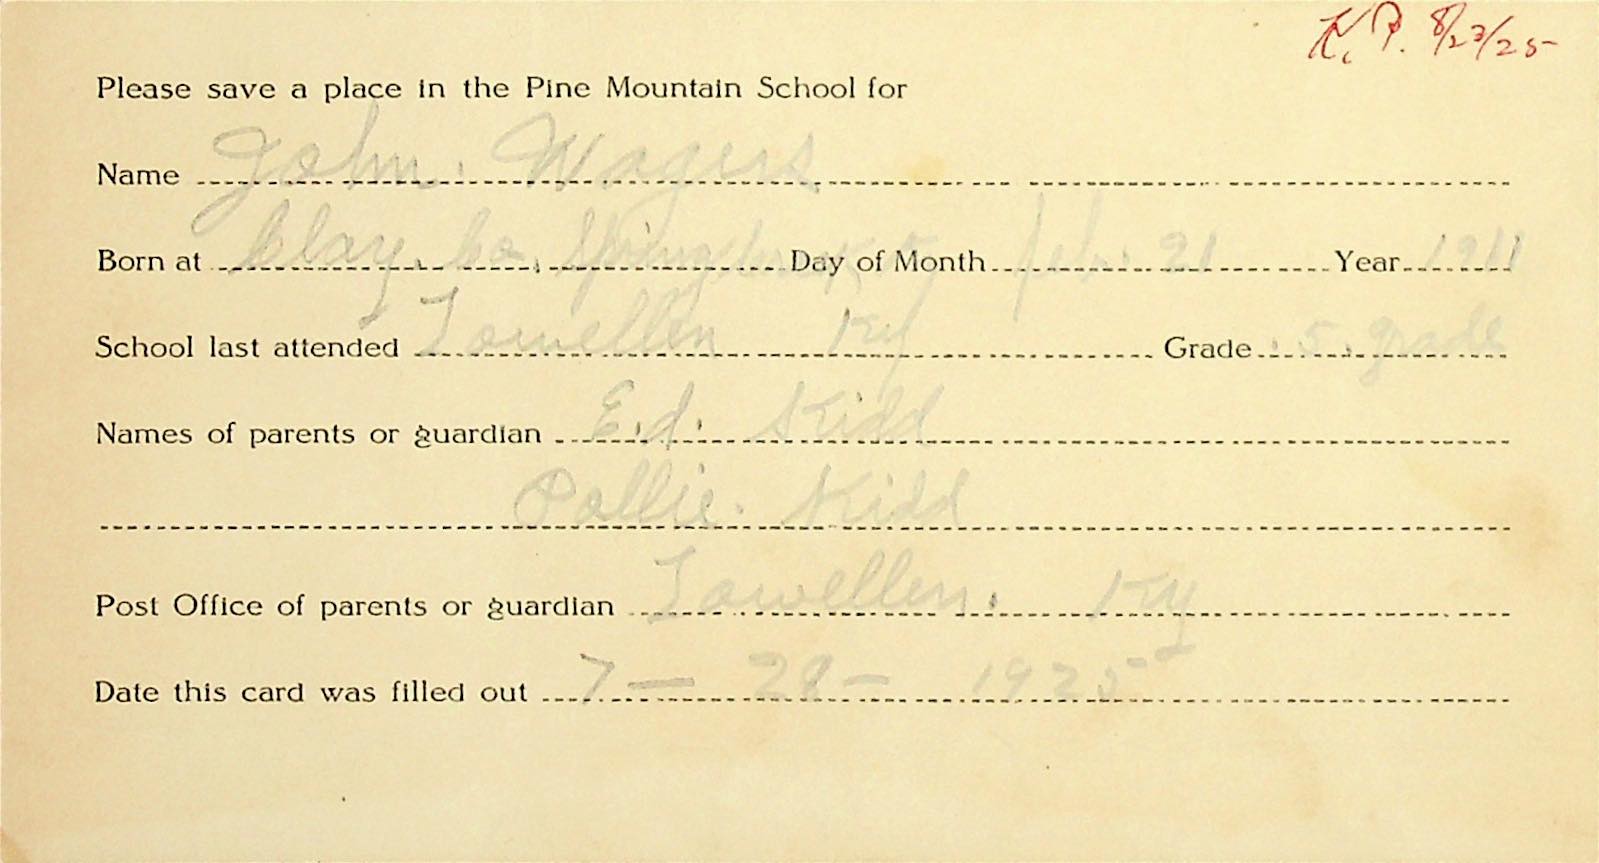 K. P. 8/27/25
Please save a place in the Pine Mountain School for
Name John. Wagers
Born at Clay. Co. Day of Month Feb. 21 Year 1911
School last attended Lowellen Ky Grade 5. grade
Names of parents or guardian E.d. Kidd
Pollie. Kidd
Post Office of parents or guardian Lowellen. Ky
Date this card was filled out 7 — 28 — 1925